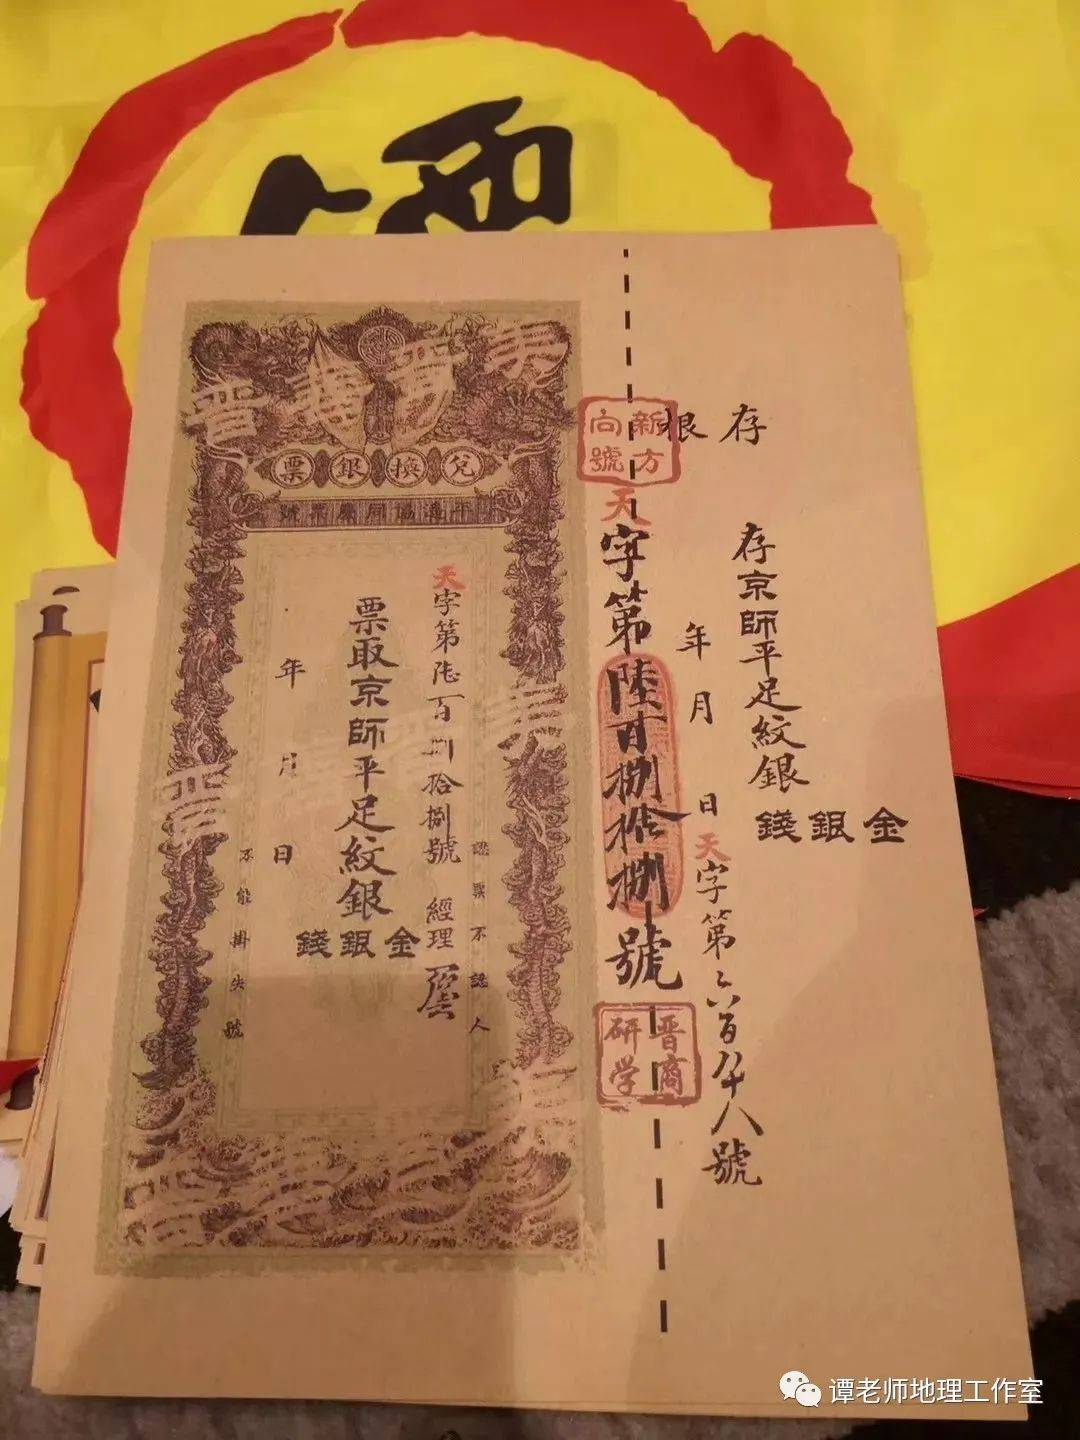 存根
存京師平足紋銀
金銀錢
年月日
天字第六百八十八號
新方向號
天字第陸百捌拾捌號
晋商研学
兌換銀票
平遙協同慶票號
認票不認人
天字第陸百捌拾捌號 經理
票取京師平足紋銀
金銀錢
年月日
不能掛失號
谭老师地理工作室